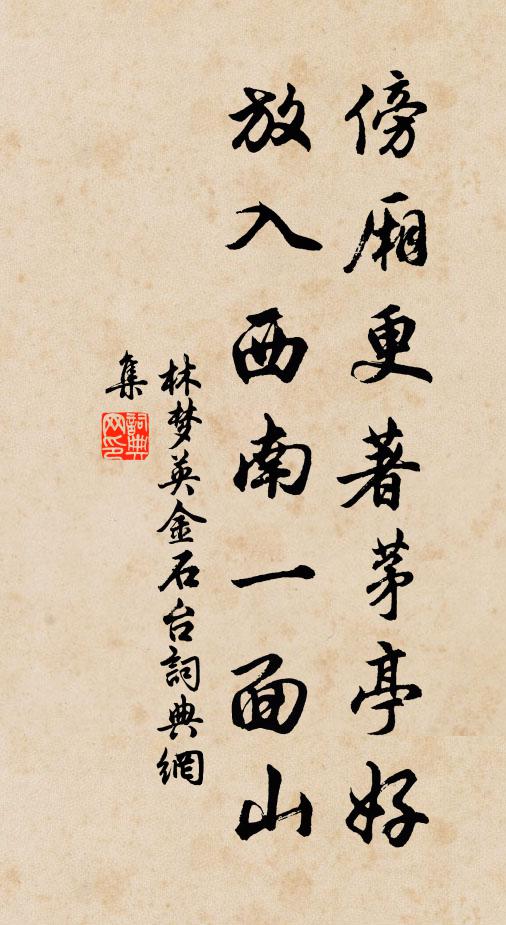 傍厢更著茅亭好
放入西南一面山
林梦英金石台詞典網
集
詞典
网印